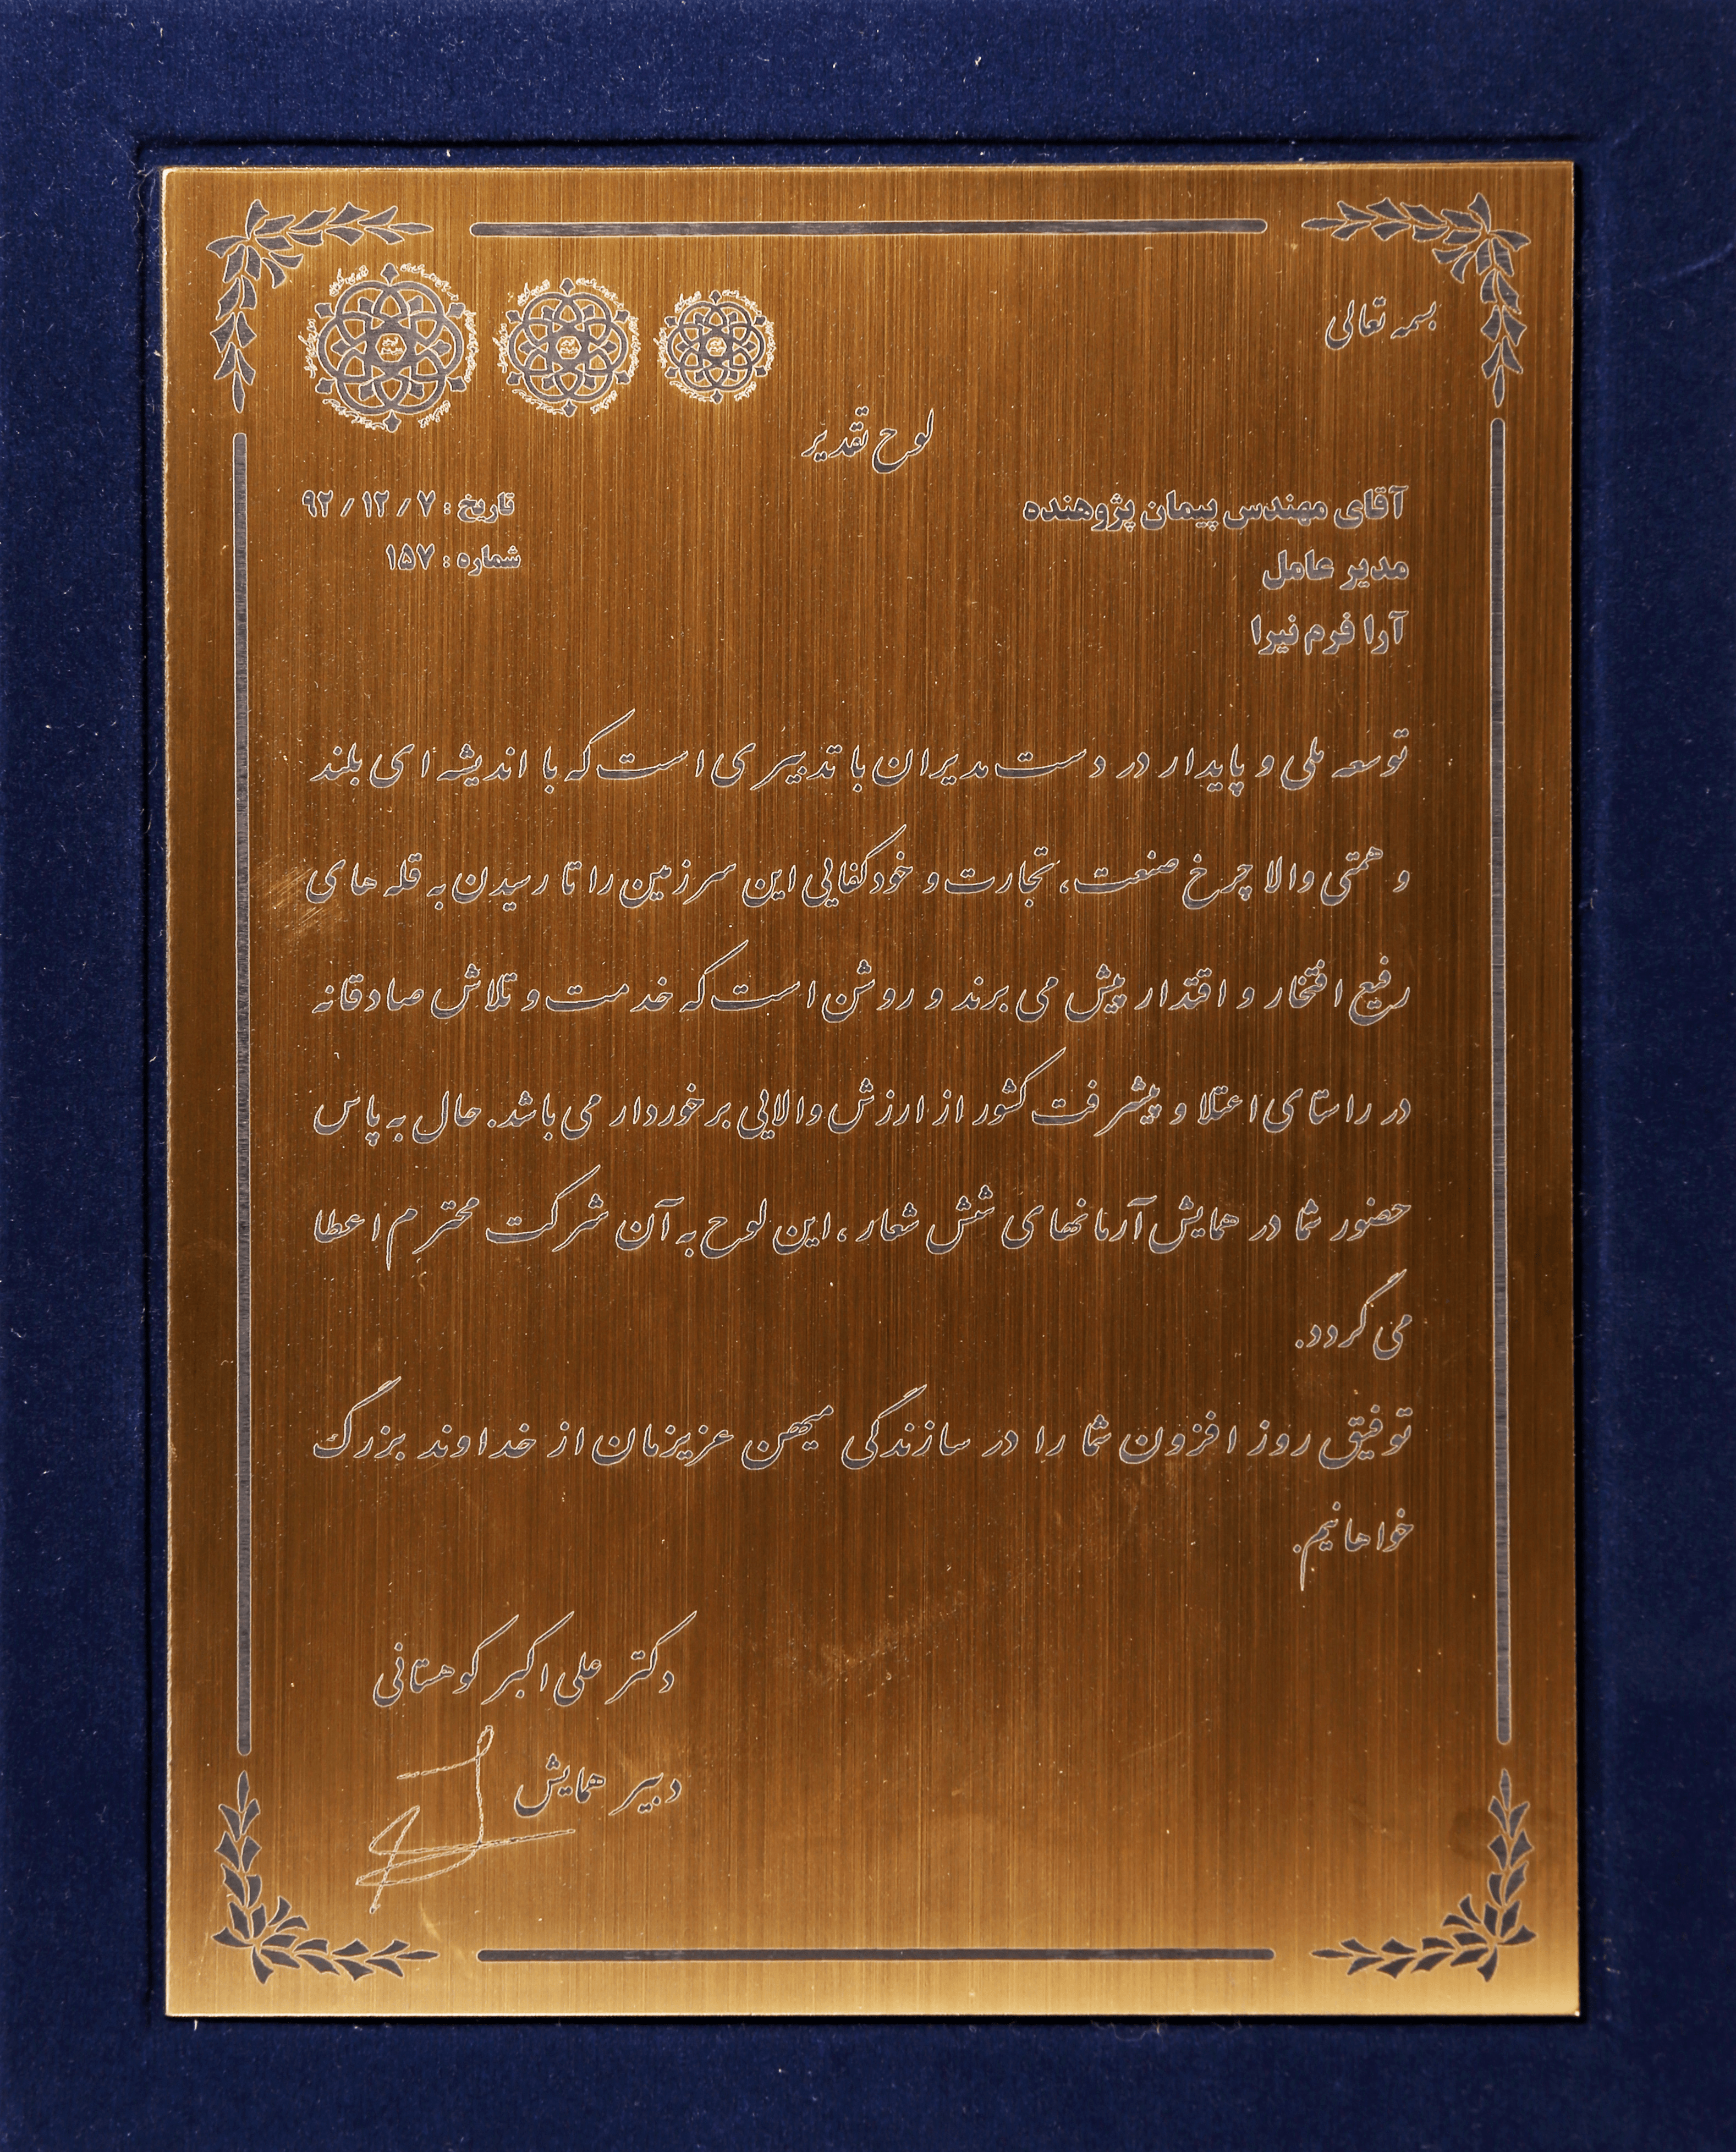 بسمه تعالی
لوح تقدیر
آقای مهندس پیمان پژوهنده
تاریخ : ۹۲/۱۲/۷
مدیر عامل
شماره : ۱۵۷
آرا فرم نیرا
توسعه ملی و پایدار در دست مدیران با تدبیری است که با اندیشه ای بلند
و همتی والا چرخ صنعت، تجارت و خودکفایی این سرزمین را تا رسیدن به قله های
رفیع افتخار و اقتدار پیش می برند و روشن است که خدمت و تلاش صادقانه
در راستای اعتلا و پیشرفت کشور از ارزش والایی برخوردار می باشد. حال به پاس
حضور شما در همایش آرمانهای شش شعار، این لوح به آن شرکت محترم اعطا
می گردد.
توفیق روز افزون شما را در سازندگی میهن عزیزمان از خداوند بزرگ
خواهانیم.
دکتر علی اکبر کوهستانی
دبیر همایش